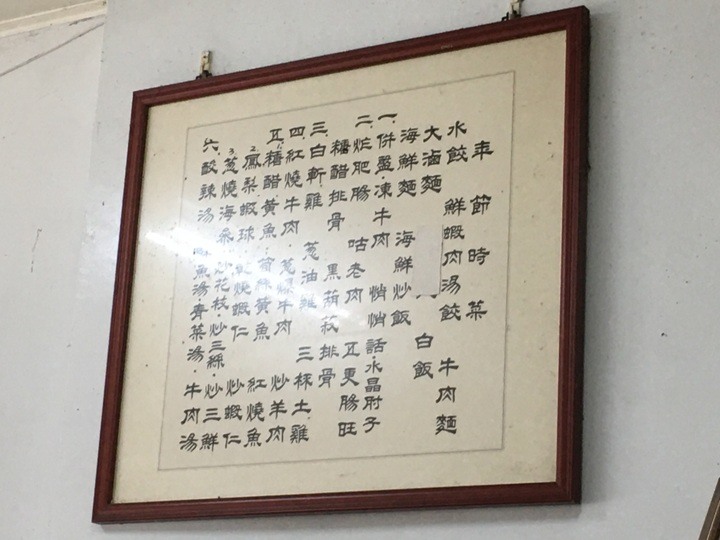 年節時菜
水餃 鮮蝦肉湯餃 牛肉麵
大滷麵 白飯
海鮮麵 海鮮炒飯
一.併盤凍牛肉 悄悄話.水晶肘子
二.炸肥腸 咕老肉 五更腸旺
糖醋排骨 黑胡荻排骨
三.白斬雞 蔥油雞 三杯土雞
四.紅燒牛肉 蔥爆牛肉 炒羊肉
五.糖醋黃魚 黃魚 紅燒魚
2.鳳梨蝦球 燒蝦仁 炒蝦仁
3.蔥燒海參 炒花枝.炒三絲.炒三鮮
六.酸辣湯 魚湯.青菜湯.牛肉湯